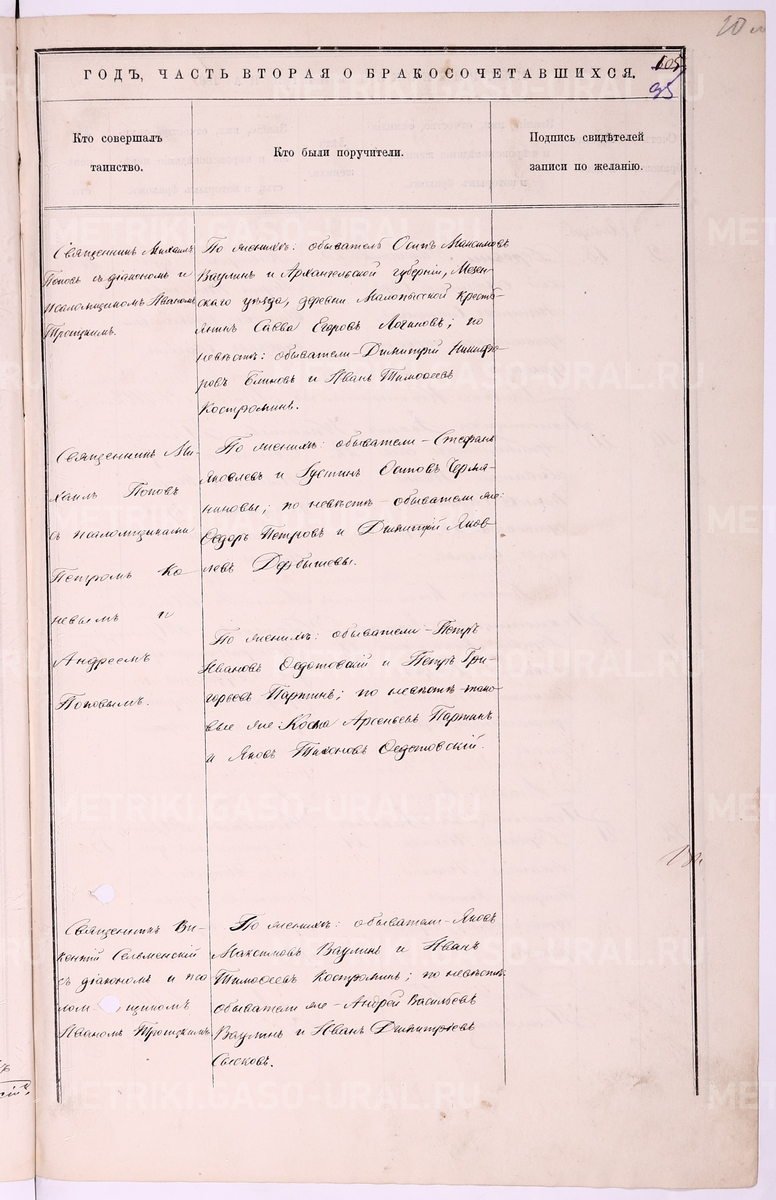 ГОДЪ, ЧАСТЬ ВТОРАЯ О БРАКОСОЧЕТАВШИХСЯ.
95
Кто совершалъ
таинство.
Кто были поручители.
Подпись свидѣтелей
записи по желанію.
Священникъ Михаилъ
Поповъ съ діакономъ и
псаломщикомъ Иваномъ
Троицкимъ.
По женихѣ: обыватель Осипъ Максимовъ
Ваулинъ и Архангельской губерніи, Мезен-
скаго уѣзда, деревни крестъ-
янинъ Савва Егоровъ Логановъ; по
невѣстѣ: обыватели – Димитрій Никифо-
ровъ Блиновъ и Иванъ Тимофеевъ
Костроминъ.
Священникъ Ми-
хаилъ Поповъ
съ псаломщиками
Петромъ Ко-
невымъ и
Андреемъ
Поповымъ.
По женихѣ: обыватели – Стефанъ
Яковлевъ и Іустинъ Осиповъ Чермя-
ниновы; по невѣстѣ – обыватели же:
Ѳедоръ Петровъ и Димитрій Яков-
левъ Дербышевы.
По женихѣ: обыватели – Петръ
Ивановъ Ѳедотовскій и Петръ Гри-
горьевъ Партинъ; по невѣстѣ – тако-
вые же: Косма Арсеньевъ Партинъ
и Яковъ Тихоновъ Ѳедотовскій.
Священникъ Ви-
кентій Селеменскій
съ діакономъ и пса
лом щикомъ
Иваномъ Троицкимъ.
По женихѣ: обыватели – Яковъ
Максимовъ Ваулинъ и Иванъ
Тимофеевъ Костроминъ; по невѣстѣ:
обыватели же – Андрей Васильевъ
Ваулинъ и Иванъ Димитріевъ
METRIKI.GASO-URAL.RU
METRIKI.GASO-URAL.RU
METRIKI.GASO-URAL.RU
METRIKI.GASO-URAL.RU